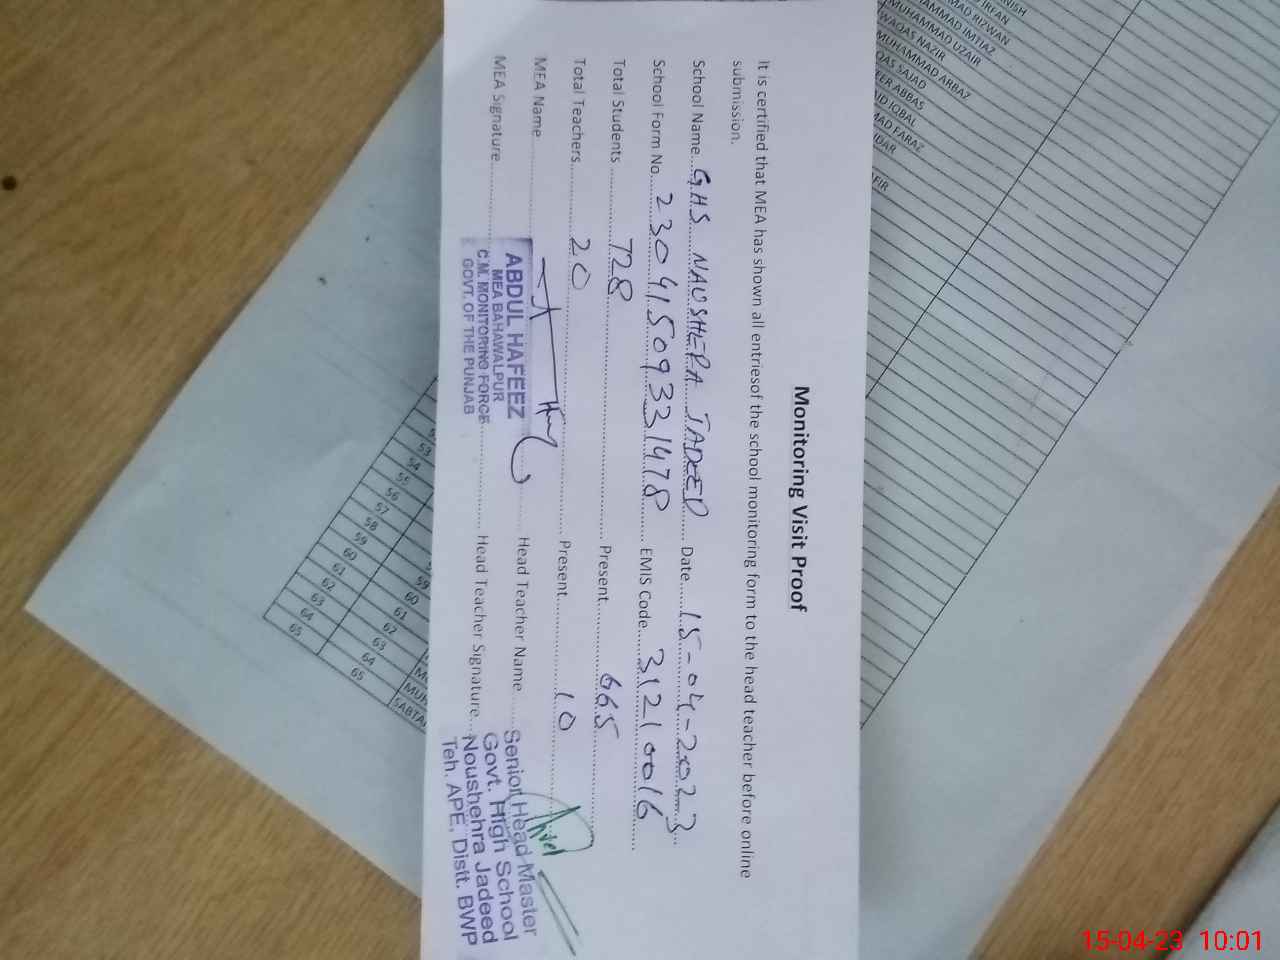 Monitoring Visit Proof
It is certified that MEA has shown all entriesof the school monitoring form to the head teacher before online
submission.
School Name....GHS NAUSHERA JADEED..... Date.....15-04-2023....
School Form No....23041509331478...... EMIS Code....31210016......
Total Students .........728......... Present.........665.........
Total Teachers.........20......... Present.........10.........
MEA Name......... Head Teacher Name .........
MEA Signature......... Head Teacher Signature.........
ABDUL HAFEEZ
MEA BAHAWALPUR
C.M. MONITORING FORCE
GOVT. OF THE PUNJAB
Senior Head Master
Govt. High School
Noushehra Jadeed
Teh. APE. Distt. BWP
IRFAN
MAD RIZWAN
HAMMAD IMTIAZ
MUHAMMAD UZAIR
WAQAS NAZIR
MUHAMMAD ARBAZ
QAS SAJAD
EER ABBAS
ID IQBAL
MAD FARAZ
53
54
55
56
57
58
59 59
60 60
61 61
62 62
63 63
64 64
65 65
15-04-23 10:01